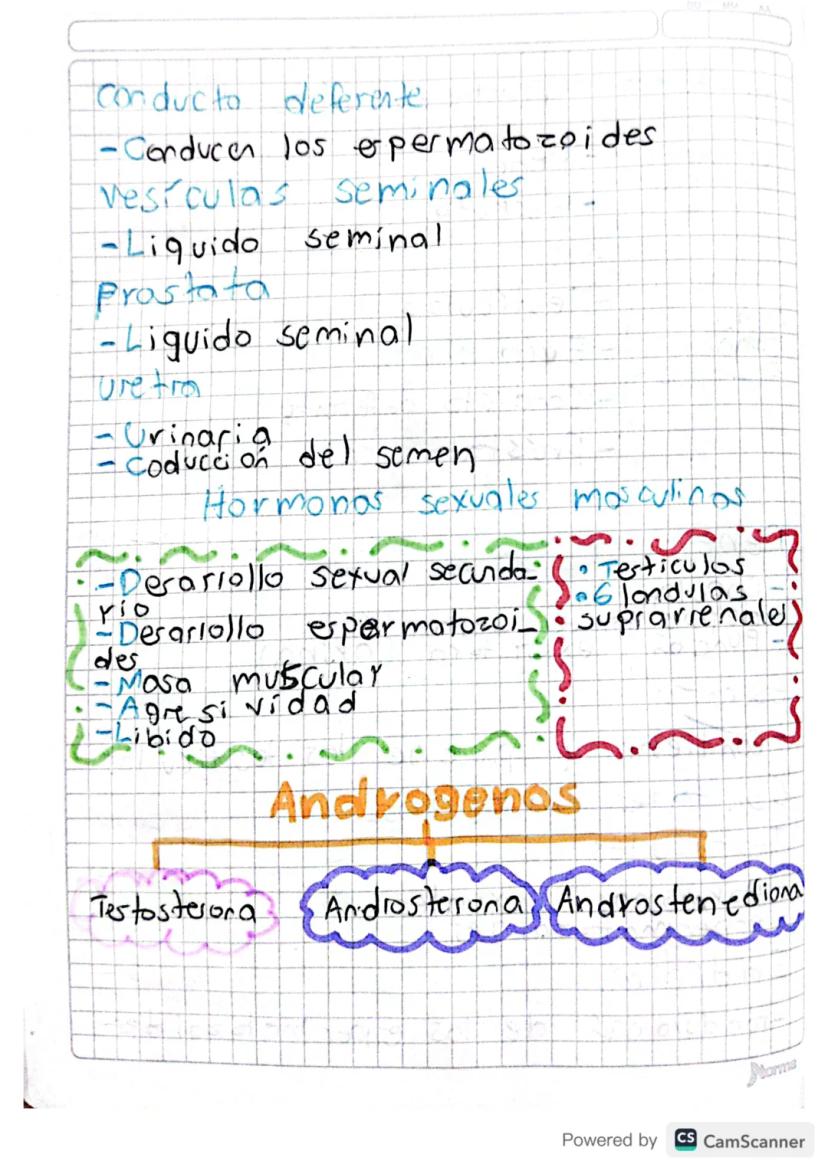 Conducto deferente
- Conducen los espermatozoides
Vesículas seminales
- Liquido seminal
Prostata
- Liquido seminal
Uretra
- Urinaria
- Coducción del semen
Hormonas sexuales masculinas
- Desarrollo sexual secunda-
rio
- Desarrollo espermatozoi-
des
- Masa muscular
- Agresividad
- Libido
• Testiculos
• Glandulas
suprarrenales
Androgenos
Testosterona
Androsterona
Androstenediona
Norma
Powered by CS CamScanner